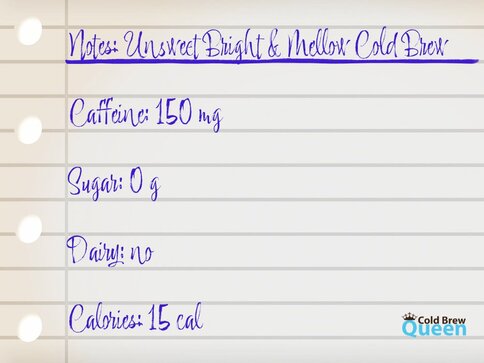 Notes: Unsweet Bright & Mellow Cold Brew
Caffeine: 150 mg
Sugar: 0 g
Dairy: no
Calories: 15 cal
Cold Brew
Queen